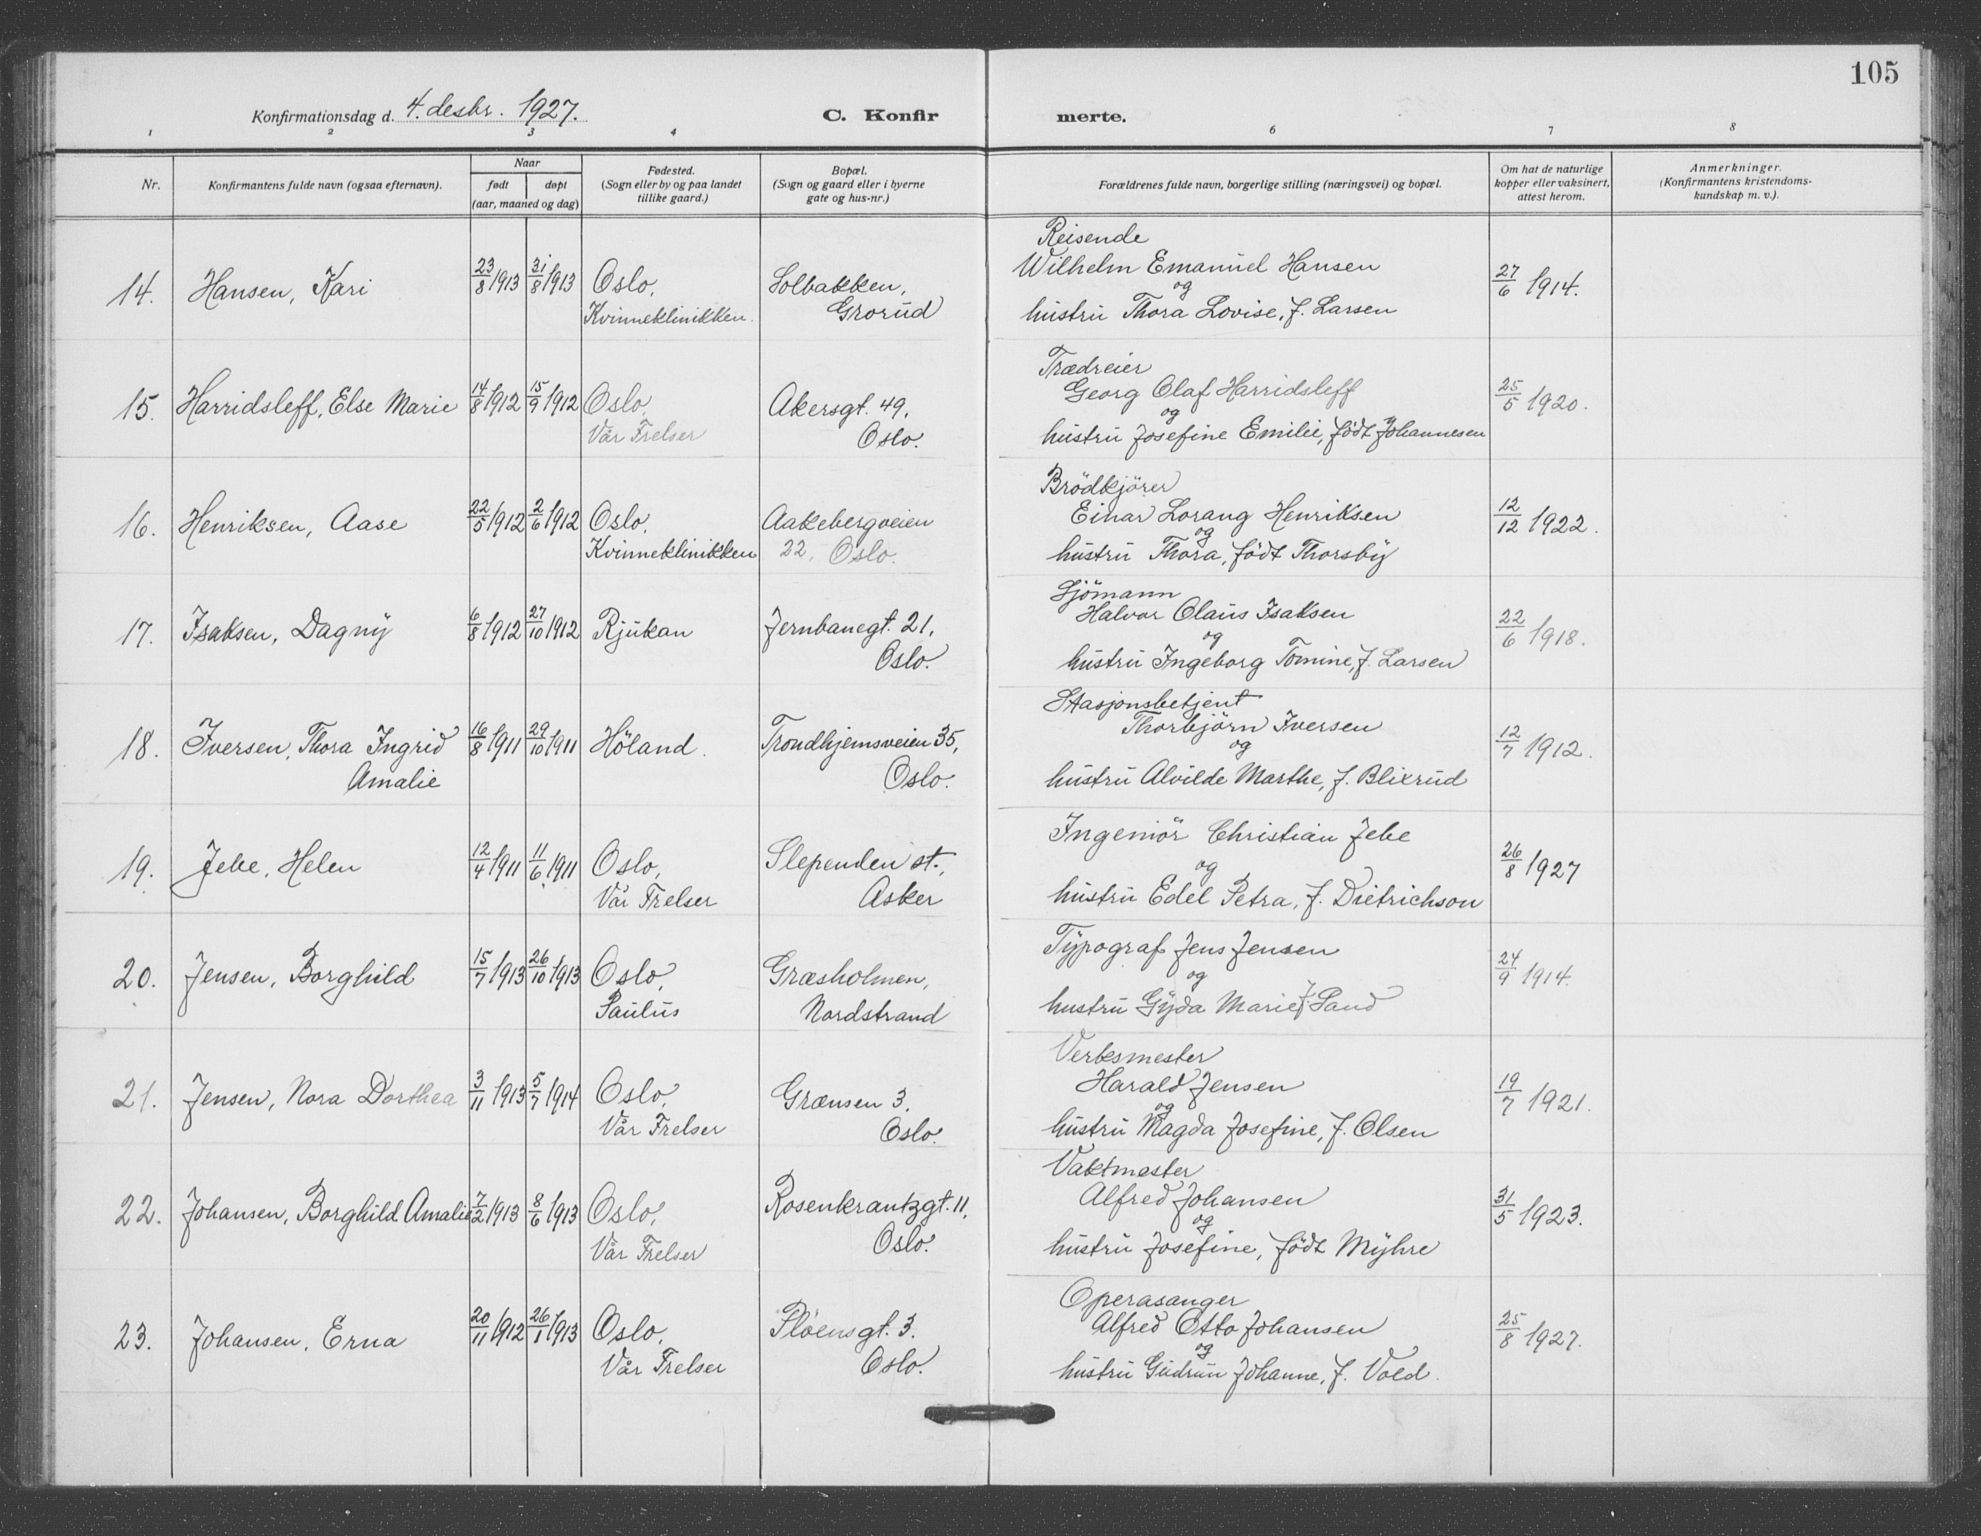 105
Konfirmationsdag d. 4. desbr. 1927.
C. Konfirmerte.
1 2 3 4 6 7 8
Nr.
Konfirmantens fulde navn (ogsaa efternavn).
Naar
født
døpt
(aar, maaned og dag)
Fødested.
(Sogn eller by og paa landet
tillike gaard.)
Bopæl.
(Sogn og gaard eller i byerne
gate og hus-nr.)
Forældrenes fulde navn, borgerlige stilling (næringsvei) og bopæl.
Om hat de naturlige
kopper eller vaksinert,
attest herom.
Anmerkninger.
(Konfirmantens kristendoms-
kundskap m. v.).
14. Hansen, Kari 23/8 1913 31/8 1913 Oslo,
Kvinneklinikken.
Solbakken,
Grorud
Reisende
Wilhelm Emanuel Hansen
og
hustru Thora Lovise, f. Larsen
27/6 1914.
15. Harridsleff, Else Marie 14/8 1912 15/9 1912 Oslo,
Vår Frelser
Akersgt. 49,
Oslo.
Trædreier
Georg Olaf Harridsleff
og
hustru Josefine Emilie, född Johannesen
25/5 1920.
16. Henriksen, Aase 22/5 1912 2/6 1912 Oslo,
Kvinneklinikken
Aakebergveien
22, Oslo.
Brödkjörer
Einar Lorang Henriksen
og
hustru Thora, född Thorsby
12/12 1922.
17. Isaksen, Dagny 6/8 1912 27/10 1912 Rjukan
Jernbanegt. 21,
Oslo.
Sjömann
Halvor Olaus Isaksen
og
hustru Ingeborg Tomine, f. Larsen
22/6 1918.
18. Iversen, Thora Ingrid
Amalie
16/8 1911 29/10 1911 Höland.
Trondhjemsveien 35,
Oslo.
Stasjonsbetjent
Thorbjörn Iversen
og
hustru Alvilde Marthe, f. Blixrud
12/7 1912.
19. Jebe, Helen 12/4 1911 11/6 1911 Oslo,
Vår Frelser
Slependen st.,
Asker
Ingeniör Christian Jebe
og
hustru Edel Petra, f. Dietrichson
26/8 1927
20. Jensen, Borghild 15/7 1913 26/10 1913 Oslo,
Paulus
Græsholmen,
Nordstrand
Typograf Jens Jensen
og
hustru Gyda Marie f. Sand
24/9 1914.
21. Jensen, Nora Dorthea 3/11 1913 5/7 1914 Oslo,
Vår Frelser
Grænsen 3,
Oslo.
Verksmester
Harald Jensen
og
hustru Magda Josefine, f. Olsen
19/7 1921.
22. Johansen, Borghild Amalie 7/2 1913 8/6 1913 Oslo,
Vår Frelser
Rosenkrantzgt. 11,
Oslo.
Vaktmester
Alfred Johansen
og
hustru Josefine, född Myhre
31/5 1923.
23. Johansen, Erna 20/11 1912 26/1 1913 Oslo,
Vår Frelser
Plöensgt. 3.
Oslo.
Operasanger
Alfred Otto Johansen
og
hustru Gudrun Johanne, f. Vold.
25/8 1927.